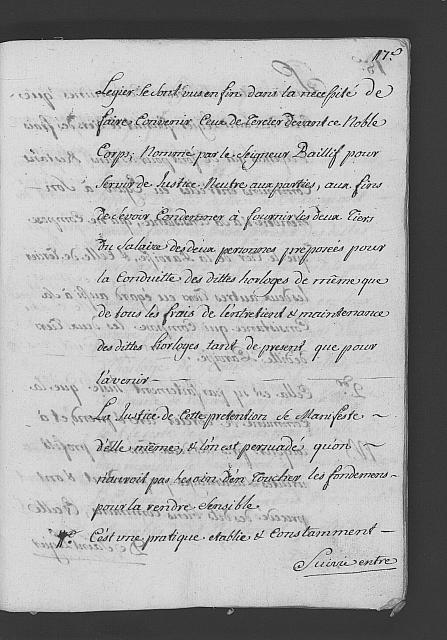 17.e
Legier se sont vus enfin dans la necessité de
faire Convenir Ceux de Tercier devant ce Noble
Corps; Nommé par le Seigneur Baillif pour
Servir de Justice Neutre aux parties, aux fins
de se voir Condemner à fournir les deux Tiers
du Salaire des deux personnes preposées pour
la Conduitte des dittes horloges de même que
de tous les frais de l'entretient & maintenance
des dittes horloges tant de present que pour
l'avenir
La Justice de Cette pretention se Manifeste
d'elle même, & l'on est persuadé qu'on
n'auroit pas besoin d'en Toucher les fondemens
pour la rendre Sensible
1.º C'est une pratique etablie & Constamment
Suivie entre